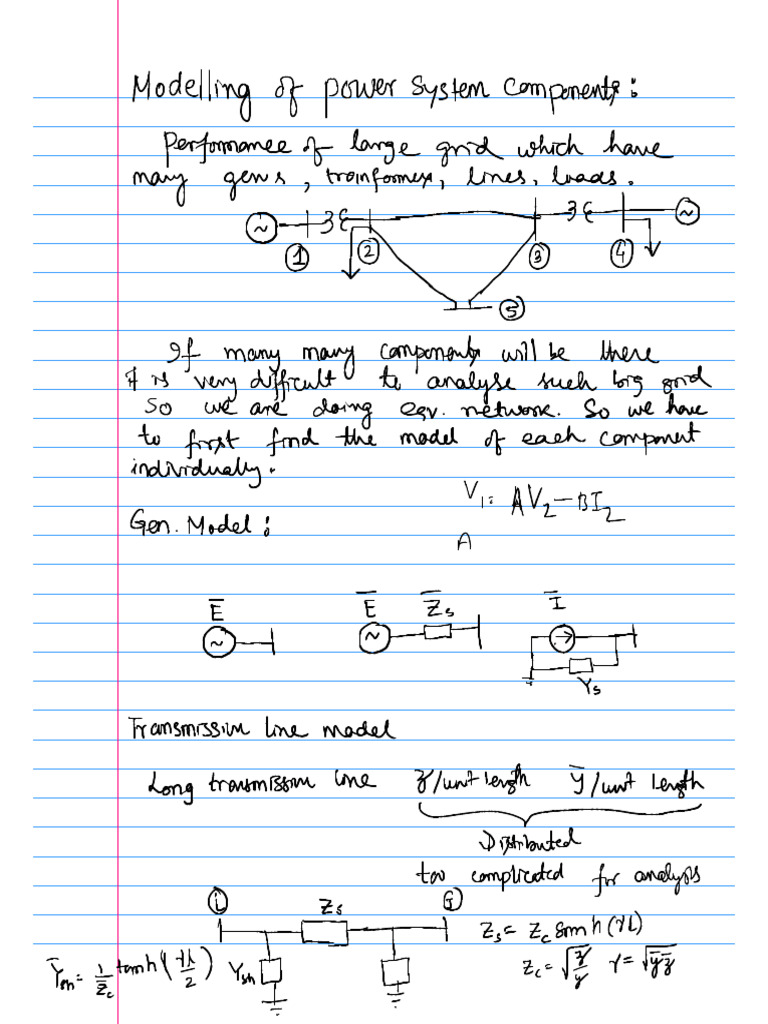 Modelling of power system components:
Performance of large grid which have
many gens, trainformers, lines, loads.
~ 3 ~
1 2 3 4
5
If many many components will be there
it is very difficult to analyse such big grid
So we are doing eqv. network. So we have
to first find the model of each component
individually.
V₁ = AV₂ - BI₂
Gen. Model:
A
E̅ E̅ Z̅s I̅
~ ~
Ys
Transmission line model
Long transmission line z̅/unit length y̅/unit length
Distributed
too complicated for analysis
i Zs j
Zs = Zc sinh(γl)
Y̅sh = 1/Z̅c tanh(γl/2) Ysh Zc = √(z̅/y) γ = √(y̅z̅)